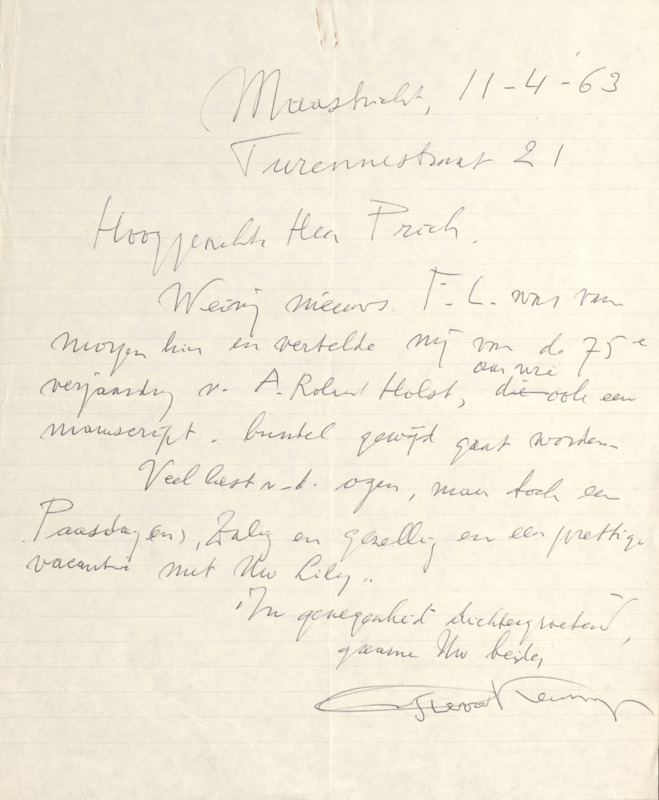 Maastricht, 11-4-'63
Turennestraat 21
Hooggeachte Heer Prick,
Weinig nieuws. F. L. was van
morgen hier en vertelde mij van de 75e
aan wie
verjaardag v. A. Roland Holst, die ook een
manuscript. bundel gewijd gaat worden.
Veel last v. d. ogen, maar toch een
Paasdag(en), Zalig en gezellig en een prettige
vacantie met Uw Lily..
In genegenheid dichtergroetend,
gaarne Uw beider